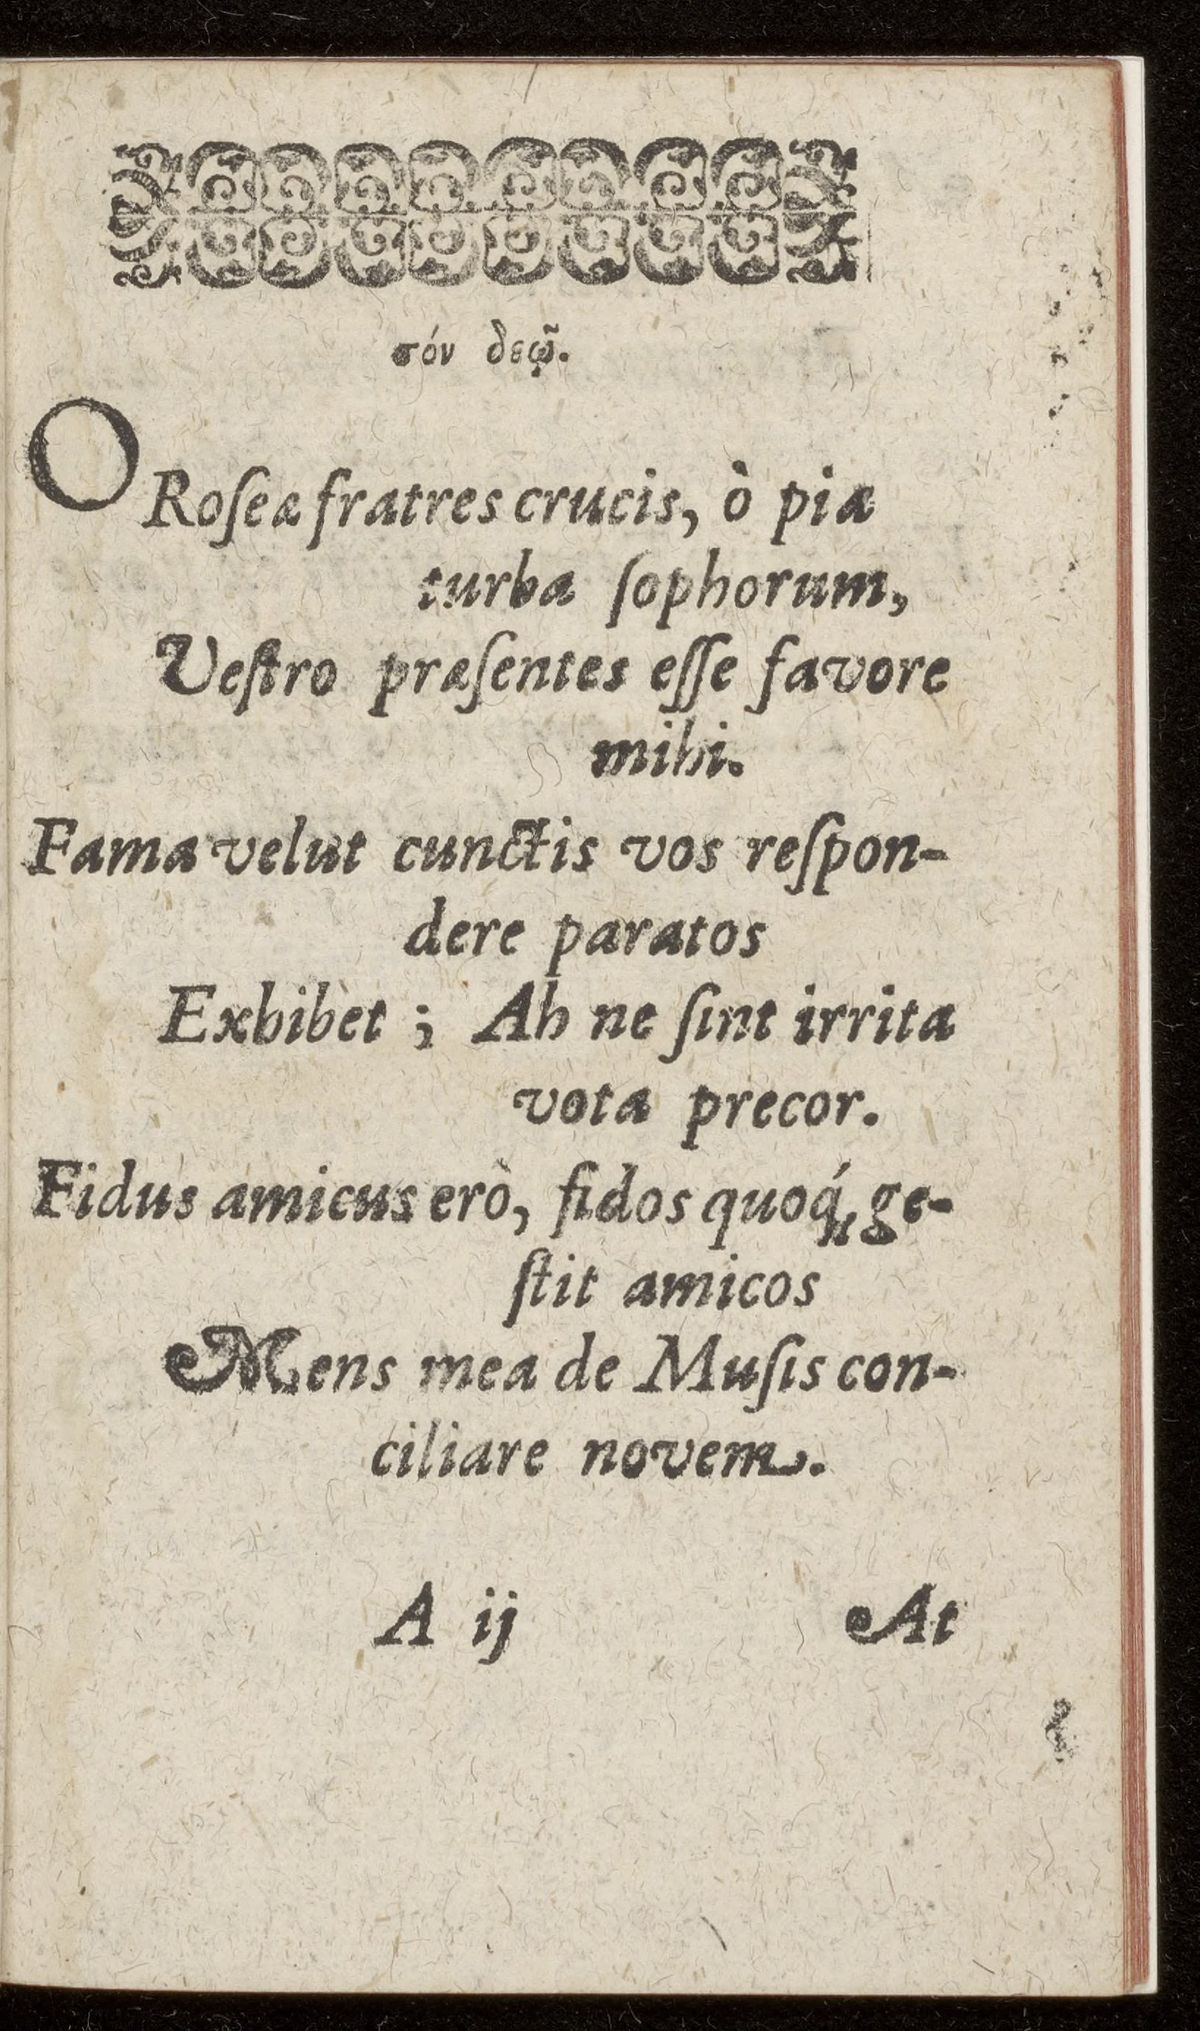 σόν δεῷ̃.
O Roſeæ fratres crucis, ò piæ
turba ſophorum,
Veſtro præſentes eſſe favore
mihi.
Fama velut cunctis vos reſpon-
dere paratos
Exhibet ; Ah ne ſint irrita
vota precor.
Fidus amicus erò, fidos quoq́; ge-
ſtit amicos
Mens mea de Muſis con-
ciliare novem.
A ij At